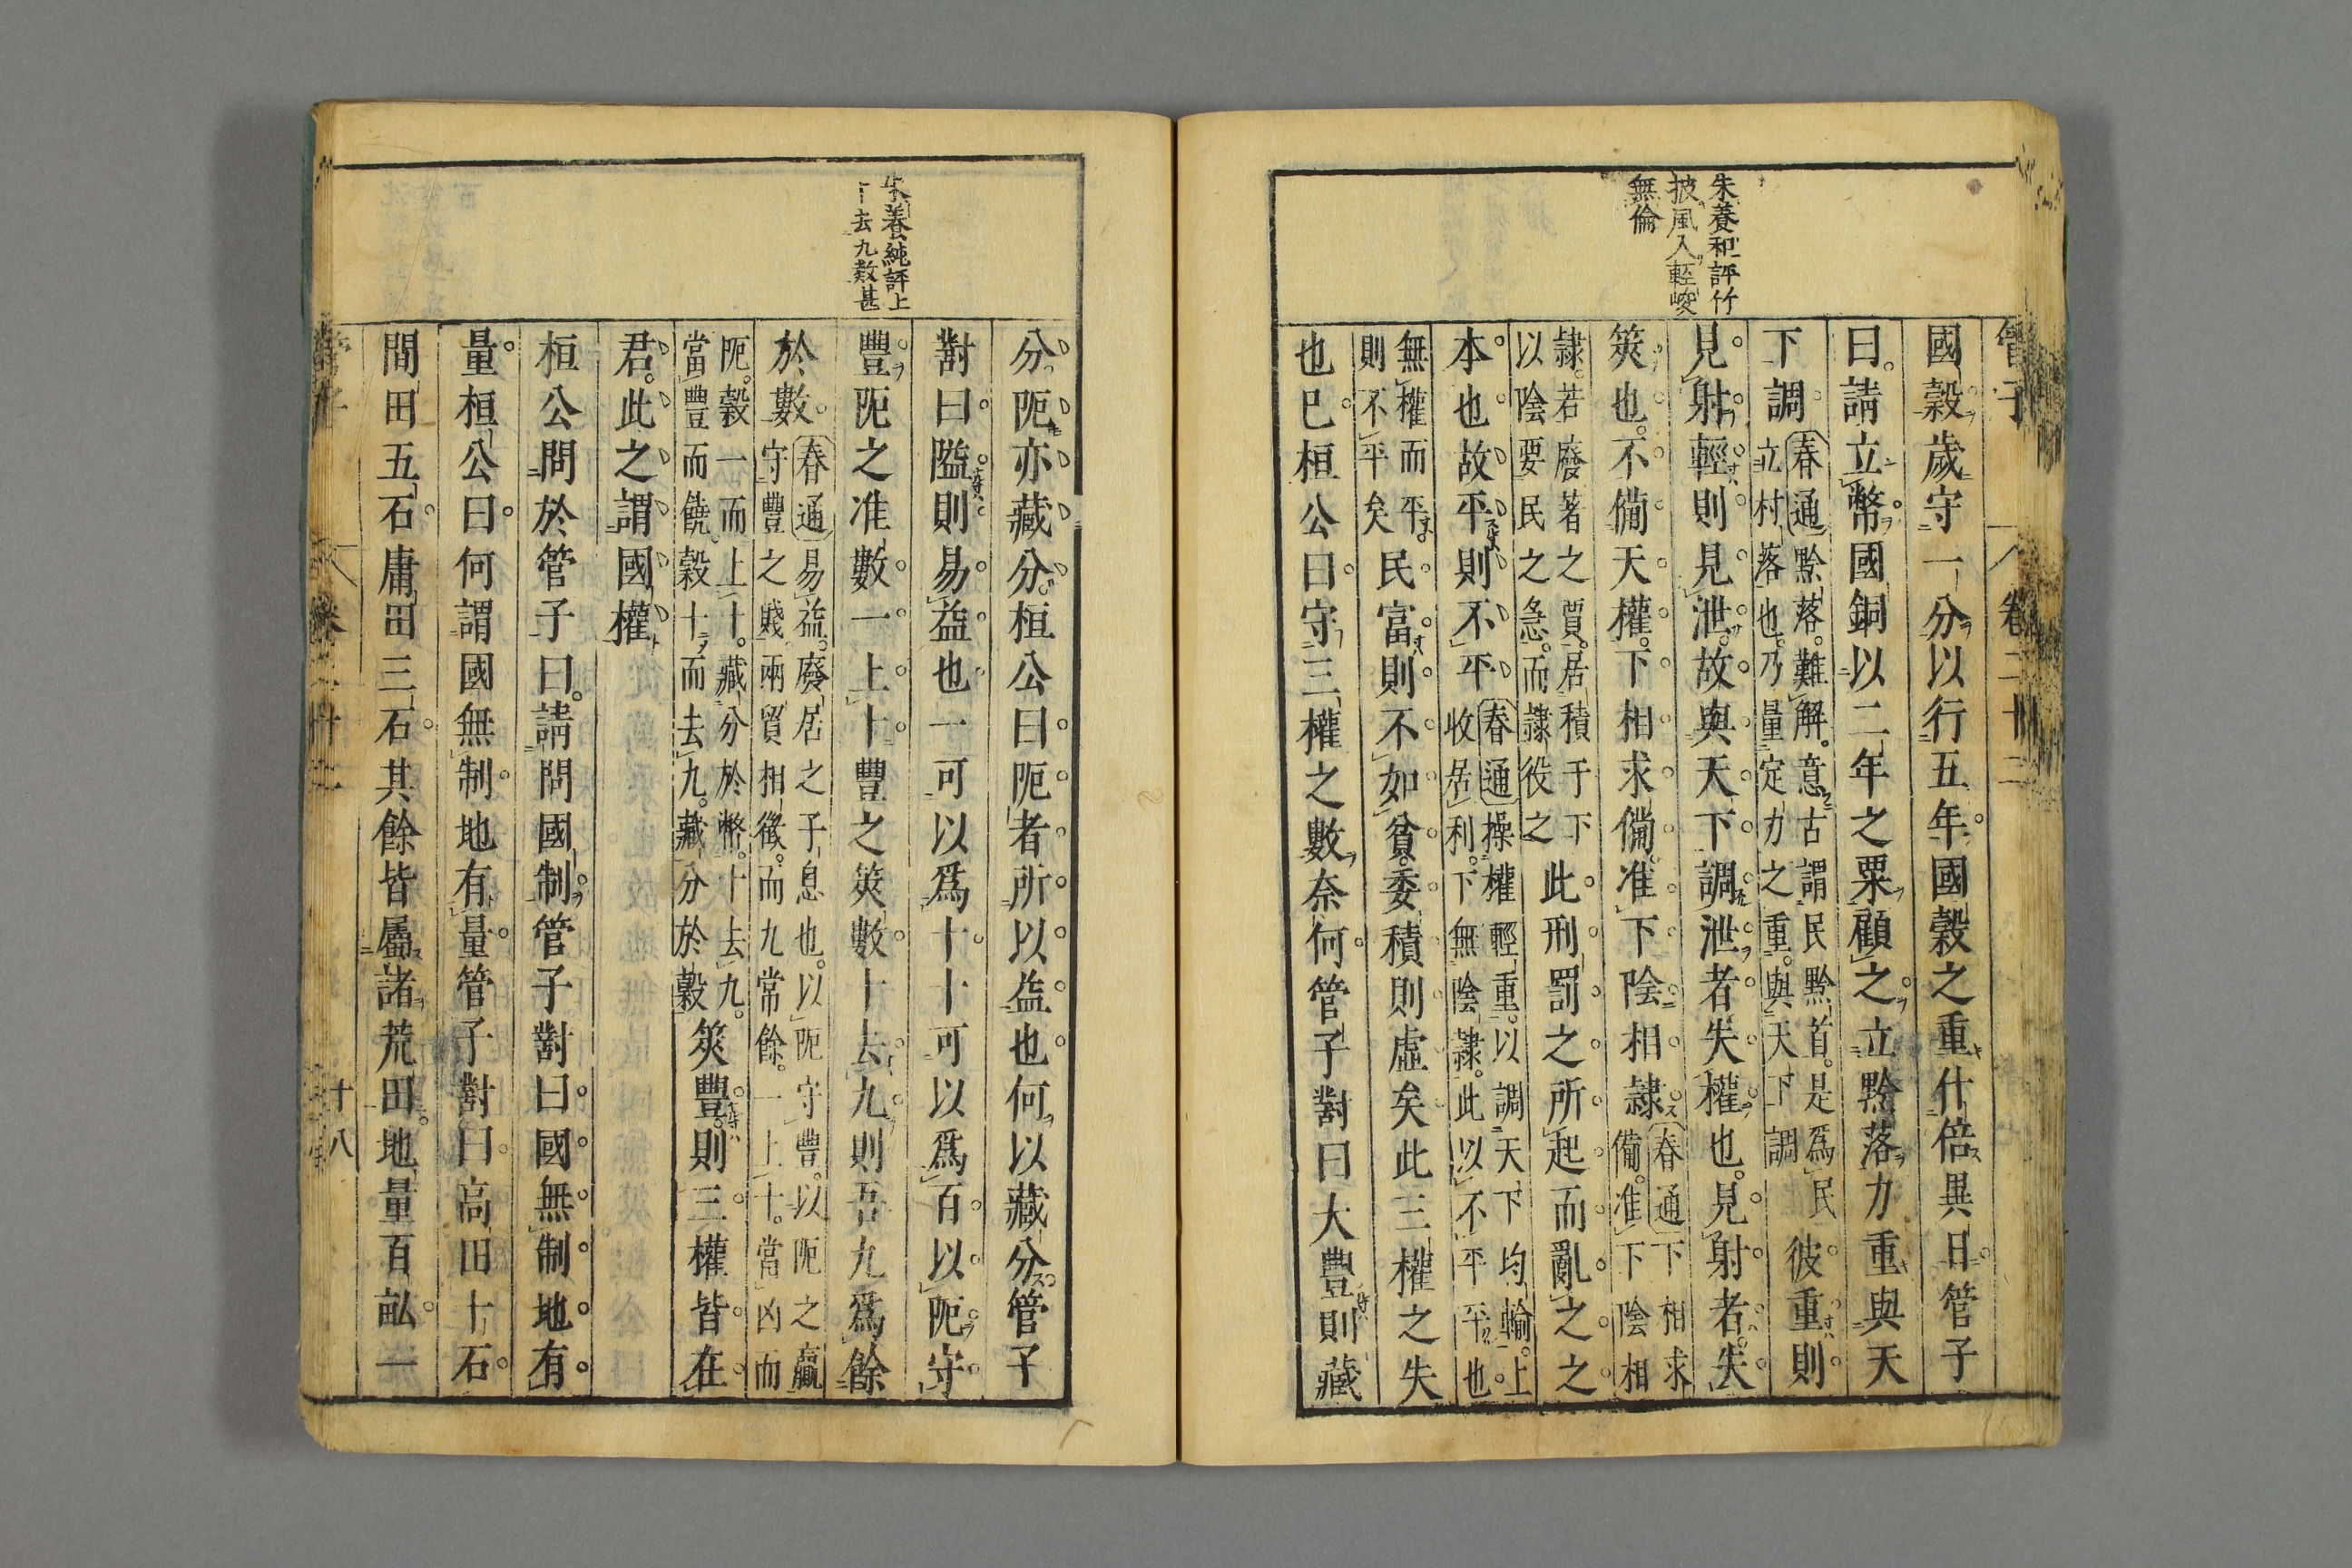 朱養和評竹
披風入輕峻
無倫
管子
卷二十二
國穀歲守一分以行五年國穀之重什倍異日管子
曰請立幣國銅以二年之粟顧之立黔落力重與天
下調春通黔落難解意古謂民黔首是爲民
立村落也乃量定力之重與天下調彼重則
見射輕則見泄故與天下調泄者失權也見射者失
筴也不備天權下相求備准下陰相隷春通下相求
備准下陰相
隷若廢著之賈居積于下
以陰要民之急而隷役之此刑罰之所起而亂之之
本也故平則不平春通操權輕重以調天下均輸上
收居利下無陰隷此以不平平也
無權而平
則不平矣民富則不如貧委積則虛矣此三權之失
也巳桓公曰守三權之數奈何管子對曰大豐則藏
朱養純評上
十去九數甚
分阨亦藏分桓公曰阨者所以益也何以藏分管子
對曰隘則易益也一可以爲十十可以爲百以阨守
豐阨之准數一上十豐之筴數十去九則吾九爲餘
於數春通易益廢居之子息也以阨守豐以阨之贏
守豐之賤兩貿相徵而九常餘一上十當凶而
阨穀一而上十藏分於幣十去九
當豐而饒穀十而去九藏分於穀筴豐則三權皆在
君此之謂國權
桓公問於管子曰請問國制管子對曰國無制地有
量桓公曰何謂國無制地有量管子對曰高田十石
間田五石庸田三石其餘皆屬諸荒田地量百畝一
管子
卷二十二
十八